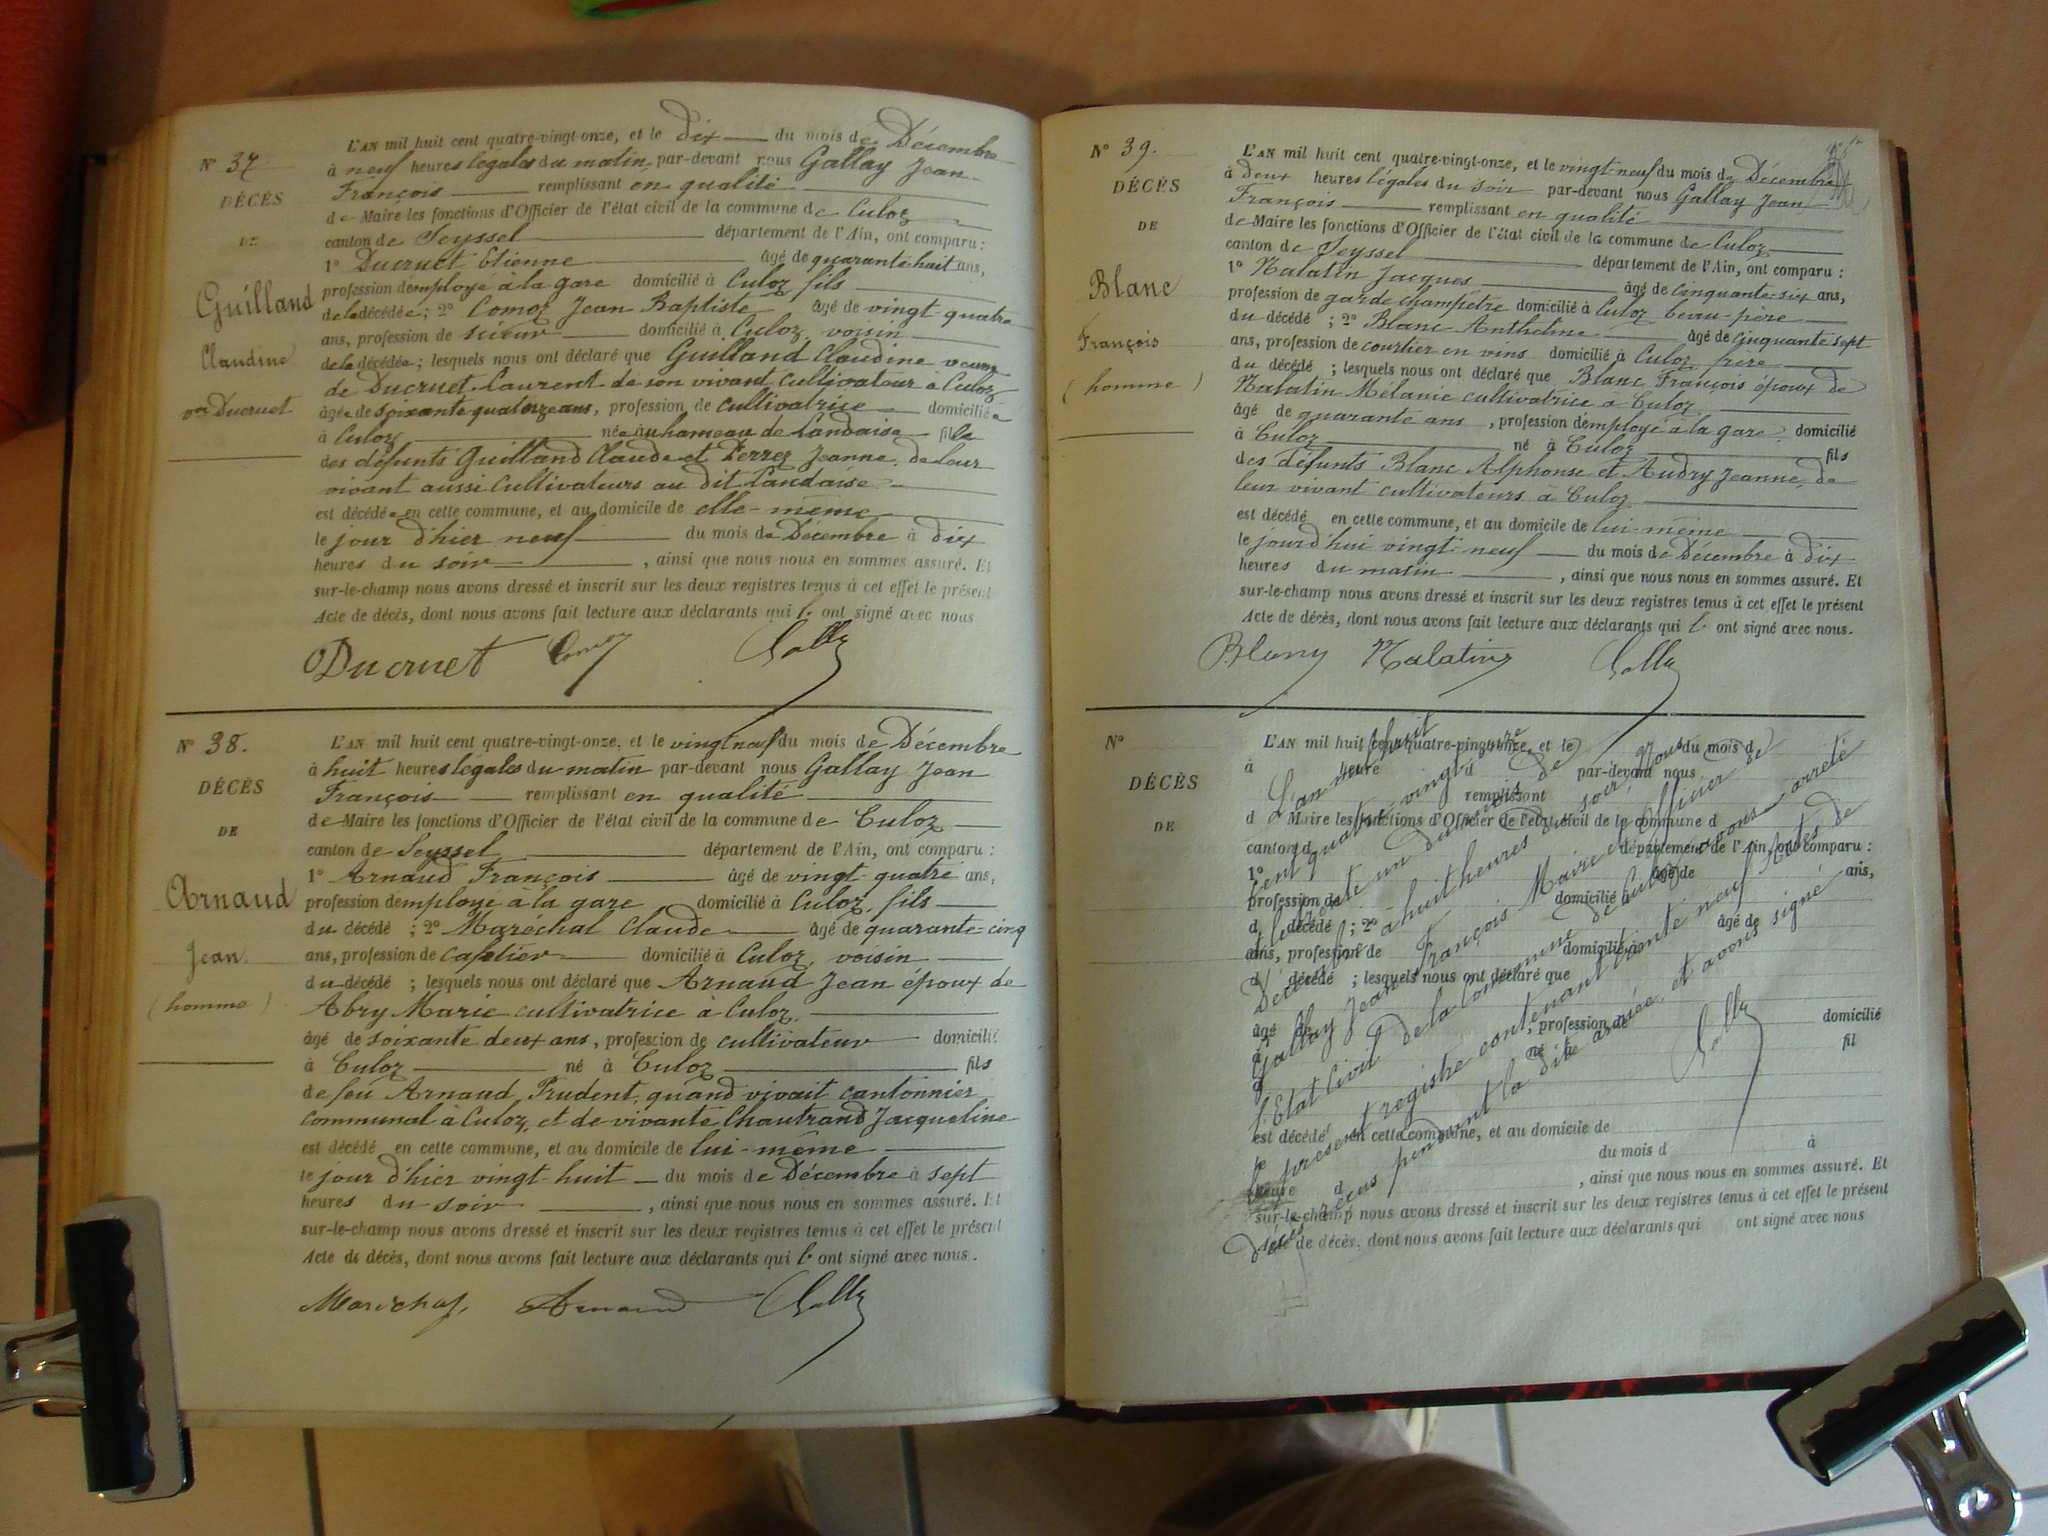 N° 37.
DÉCÈS
DE
Guilland
Claudine
vve Ducruet
L'AN mil huit cent quatre-vingt-onze, et le dix du mois de Décembre
à neuf heures légales du matin par-devant nous Gallay Jean
François remplissant en qualité
de Maire les fonctions d'Officier de l'état civil de la commune de Culoz
canton de Seyssel département de l'Ain, ont comparu :
1° Ducruet Etienne âgé de quarante huit ans,
profession d'employé à la gare domicilié à Culoz fils
de la décédée ; 2° Comoz Jean Baptiste âgé de vingt-quatre
ans, profession de scieur domicilié à Culoz, voisin
de la décédée ; lesquels nous ont déclaré que Guilland Claudine veuve
de Ducruet Laurent de son vivant cultivateur à Culoz
âgée de soixante quatorze ans, profession de cultivatrice domiciliée
à Culoz née au hameau de Landaise fille
des défunts Guilland Claude et Perrez Jeanne, de leur
vivant aussi cultivateurs au dit Landaise
est décédée en cette commune, et au domicile de elle-même
le jour d'hier neuf du mois de Décembre à dix
heures du soir, ainsi que nous nous en sommes assuré. Et
sur-le-champ nous avons dressé et inscrit sur les deux registres tenus à cet effet le présent
Acte de décès, dont nous avons fait lecture aux déclarants qui l' ont signé avec nous
Ducruet Comoz Gally
N° 38.
DÉCÈS
DE
Arnaud
Jean
(homme)
L'AN mil huit cent quatre-vingt-onze, et le vingt neuf du mois de Décembre
à huit heures légales du matin par-devant nous Gallay Jean
François remplissant en qualité
de Maire les fonctions d'Officier de l'état civil de la commune de Culoz
canton de Seyssel département de l'Ain, ont comparu :
1° Arnaud François âgé de vingt-quatre ans,
profession d'employé à la gare domicilié à Culoz, fils
du décédé ; 2° Maréchal Claude âgé de quarante-cinq
ans, profession de cafetier domicilié à Culoz, voisin
du décédé ; lesquels nous ont déclaré que Arnaud Jean époux de
Abry Marie cultivatrice à Culoz,
âgé de soixante deux ans, profession de cultivateur domicilié
à Culoz né à Culoz fils
de feu Arnaud Prudent, quand vivait cantonnier
communal à Culoz, et de vivante Chautrand Jacqueline
est décédé en cette commune, et au domicile de lui-même
le jour d'hier vingt-huit du mois de Décembre à sept
heures du soir, ainsi que nous nous en sommes assuré. Et
sur-le-champ nous avons dressé et inscrit sur les deux registres tenus à cet effet le présent
Acte de décès, dont nous avons fait lecture aux déclarants qui l' ont signé avec nous.
Maréchal, Arnaud Gally
N° 39.
DÉCÈS
DE
Blanc
François
(homme)
L'AN mil huit cent quatre-vingt-onze, et le vingt-neuf du mois de Décembre
à deux heures légales du soir par-devant nous Gallay Jean
François remplissant en qualité
de Maire les fonctions d'Officier de l'état civil de la commune de Culoz
canton de Seyssel département de l'Ain, ont comparu :
1° Malatin Jacques âgé de cinquante-six ans,
profession de garde champêtre domicilié à Culoz beau-père
du décédé ; 2° Blanc Anthelme âgé de cinquante sept
ans, profession de courtier en vins domicilié à Culoz, frère
du décédé ; lesquels nous ont déclaré que Blanc François époux de
Malatin Mélanie cultivatrice à Culoz
âgé de quarante ans, profession d'employé à la gare domicilié
à Culoz né à Culoz fils
des défunts Blanc Alphonse et Audry Jeanne, de
leur vivant cultivateurs à Culoz
est décédé en cette commune, et au domicile de lui-même
le jourd'hui vingt-neuf du mois de Décembre à dix
heures du matin, ainsi que nous nous en sommes assuré. Et
sur-le-champ nous avons dressé et inscrit sur les deux registres tenus à cet effet le présent
Acte de décès, dont nous avons fait lecture aux déclarants qui l' ont signé avec nous.
Blanc Malatin Gally
N°
DÉCÈS
DE
L'AN mil huit cent quatre-vingt-onze, et le du mois d
à heure d par-devant nous
remplissant
d Maire les fonctions d'Officier de l'état civil de la commune d
canton d département de l'Ain, ont comparu :
1° âgé de ans,
profession de domicilié à
d décédé ; 2° âgé de
ans, profession de domicilié à
d décédé ; lesquels nous ont déclaré que
âgé de , profession de domicilié
à né à fil
est décédé en cette commune, et au domicile de
le du mois d à
heure d , ainsi que nous nous en sommes assuré. Et
sur-le-champ nous avons dressé et inscrit sur les deux registres tenus à cet effet le présent
Acte de décès, dont nous avons fait lecture aux déclarants qui ont signé avec nous
L'an mil huit
cent quatre-vingt-onze,
et le trente un du mois de
Décembre à huit heures du soir, Nous
Gallay Jean François Maire et officier de
l'Etat Civil de la Commune de Culoz, avons arrêté
le présent registre contenant trente neuf Actes de
décès reçus pendant la dite année, et avons signé
Gally